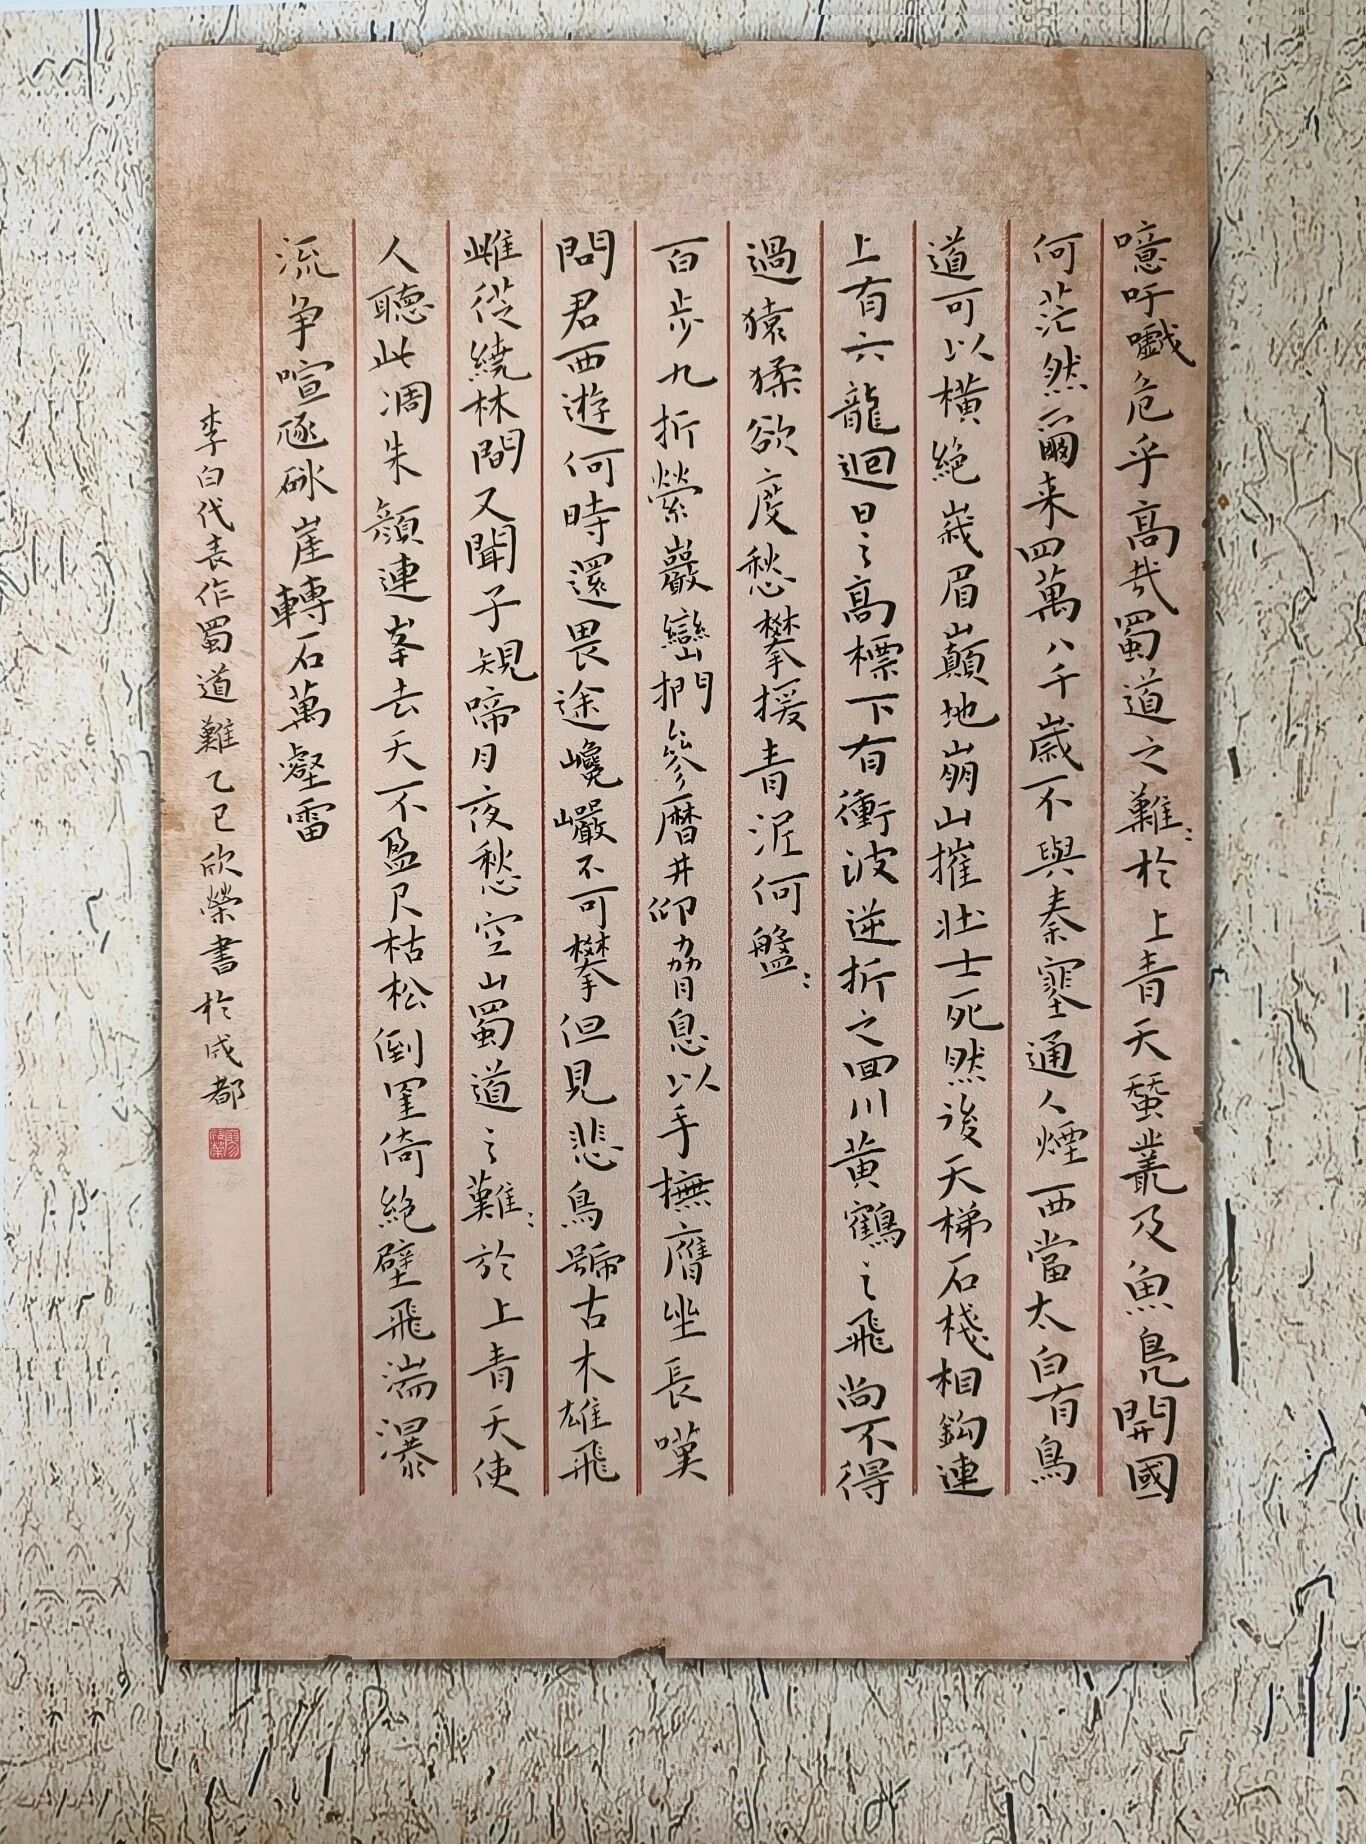 噫吁戲危乎高哉蜀道之難〻於上青天蠶叢及魚鳧開國
何茫然爾来四萬八千歲不與秦塞通人煙西當太白有鳥
道可以橫絕峩眉巔地崩山摧壯士死然後天梯石棧相鉤連
上有六龍迴日之高標下有衝波逆折之回川黃鶴之飛尚不得
過猿猱欲度愁攀援青泥何盤〻
百步九折縈巖巒捫參曆井仰脅息以手撫膺坐長嘆
問君西遊何時還畏途巉巖不可攀但見悲鳥號古木雄飛
雌從繞林間又聞子規啼月夜愁空山蜀道之難〻於上青天使
人聽此凋朱顏連峯去天不盈尺枯松倒挂倚絕壁飛湍瀑
流争喧豗砯崖轉石萬壑雷
李白代表作蜀道難乙巳欣榮書於成都